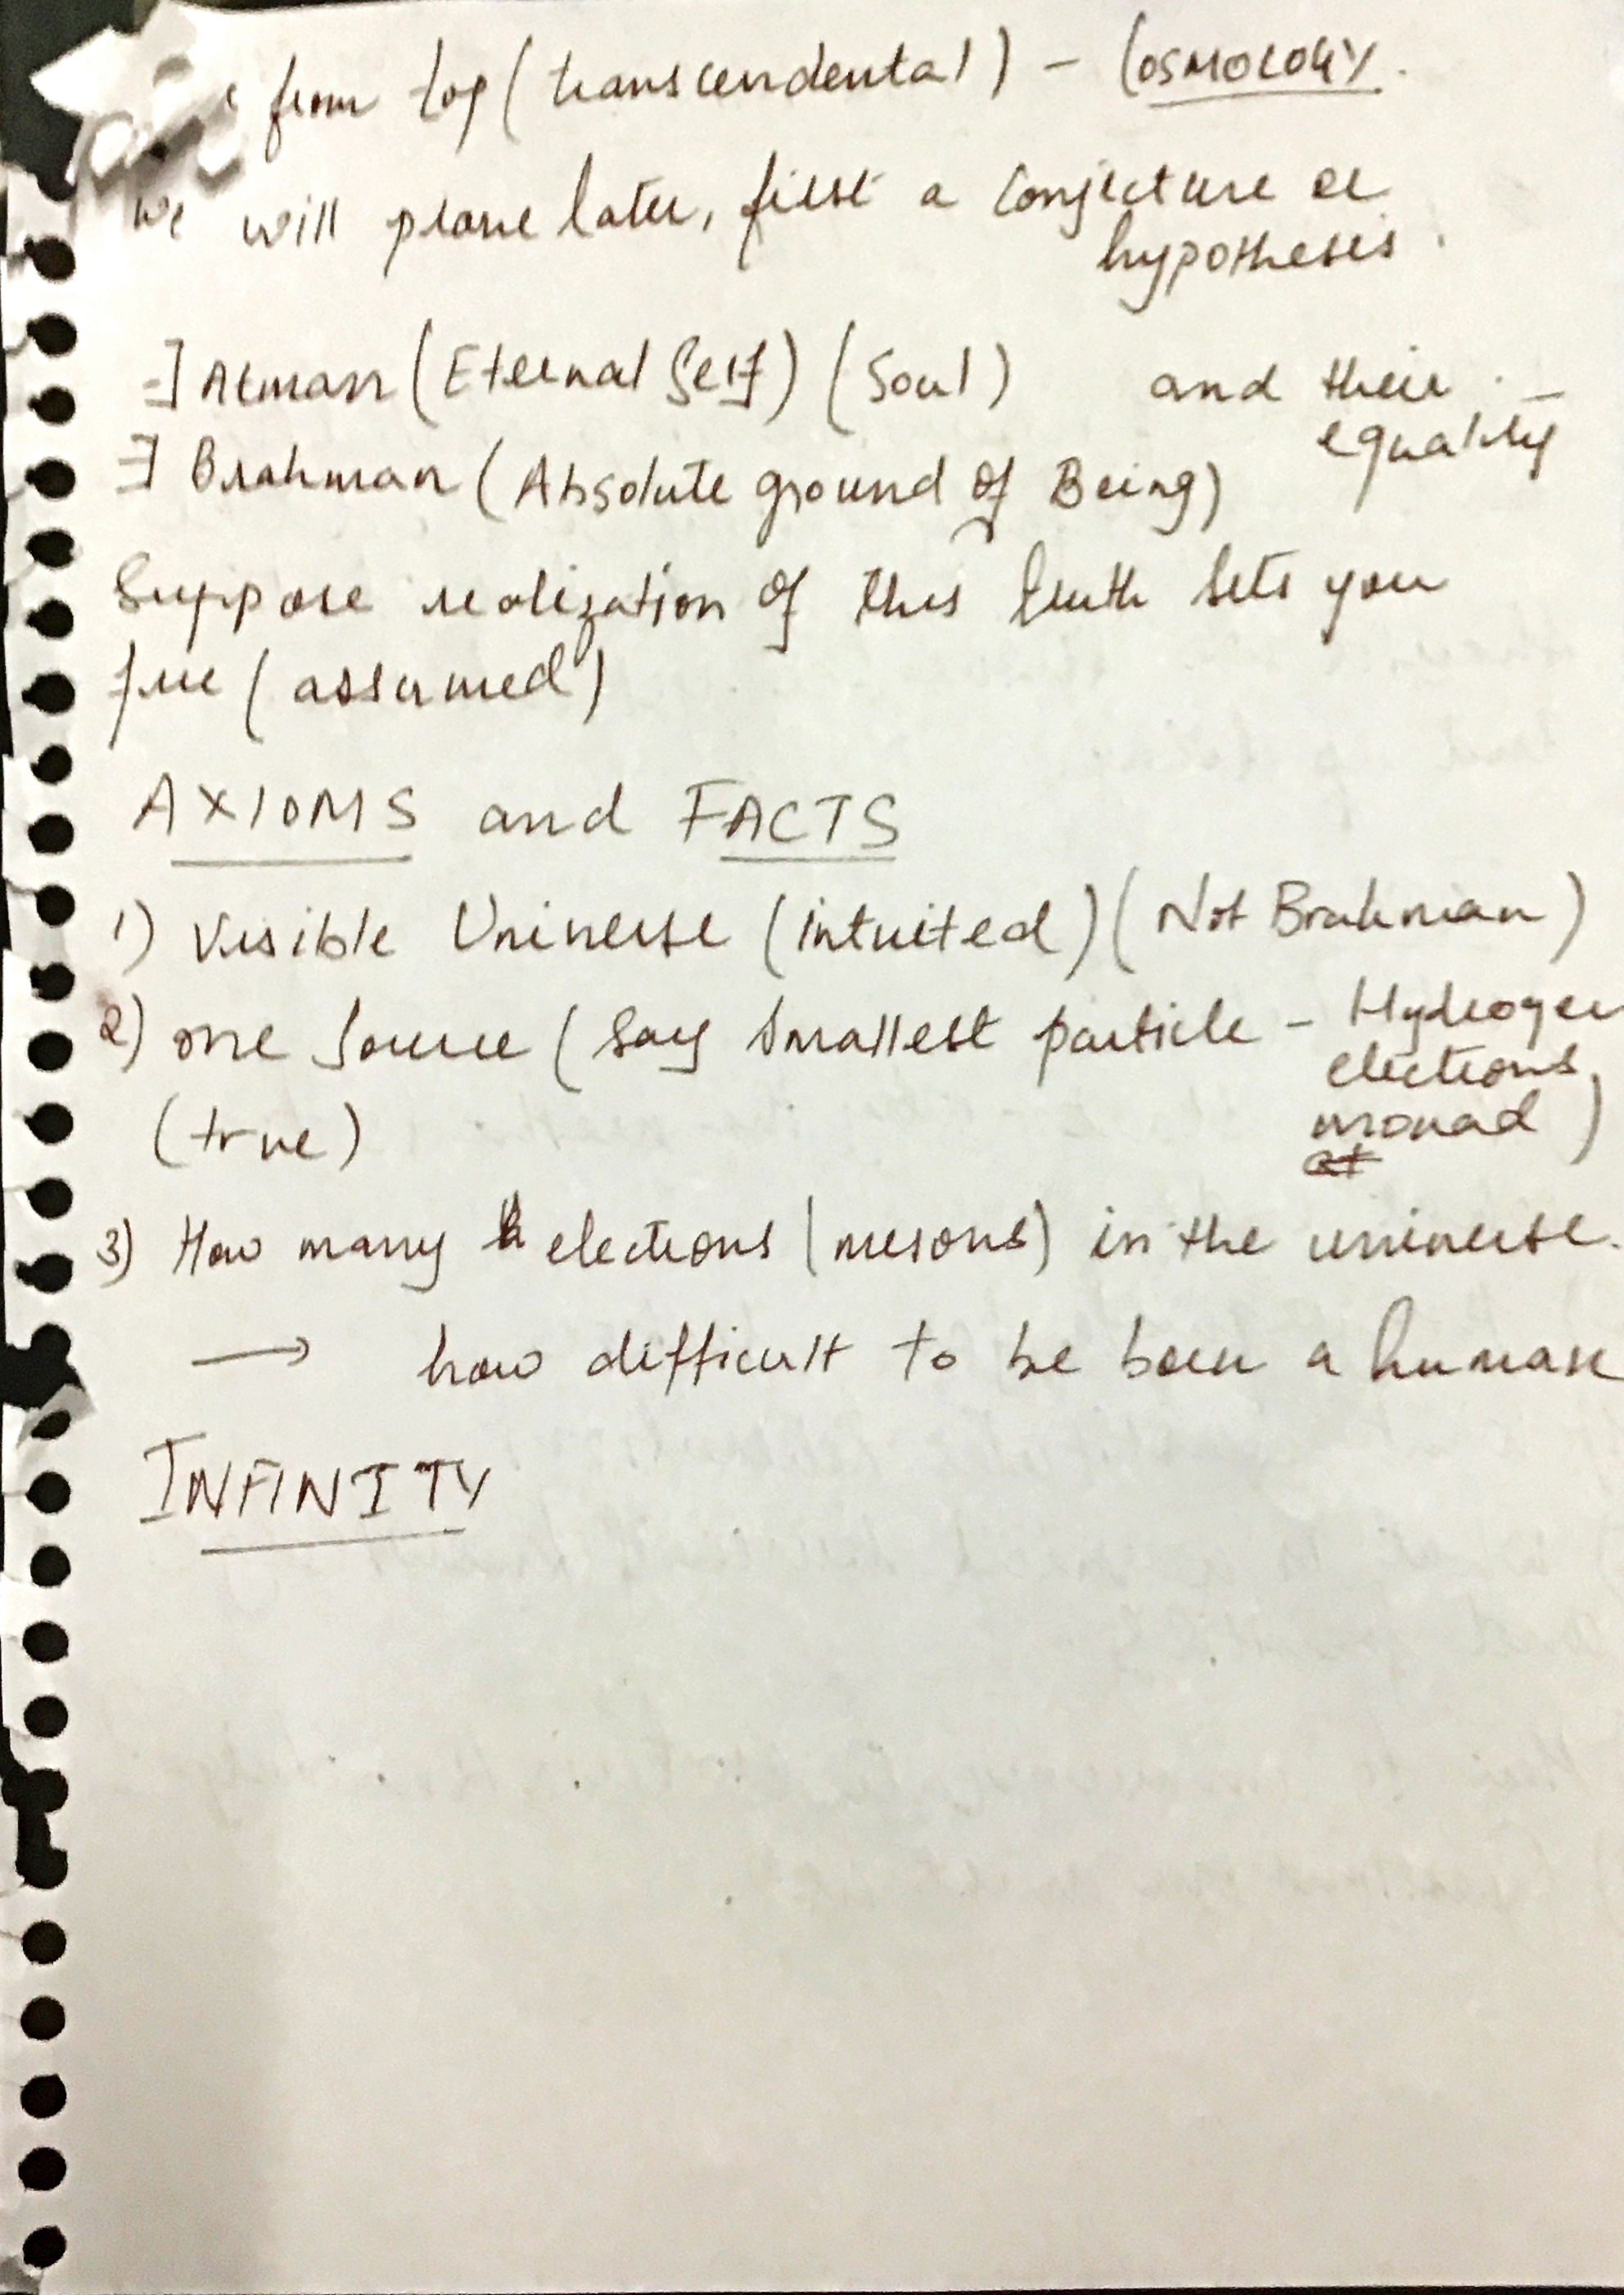 from top (transcendental) - COSMOLOGY.
we will prove later, first a conjecture or
hypothesis.
∃ Atman (Eternal Self) (Soul) and their
equality
∃ Brahman (Absolute ground of Being)
Suppose realization of this truth sets you
free (assumed)
AXIOMS and FACTS
1) Visible Universe (intuited) (Not Brahman)
2) one source (say smallest particle - Hydrogen
electrons,
monad)
(true)
3) How many electrons (mesons) in the universe.
→ how difficult to be born a human
INFINITY